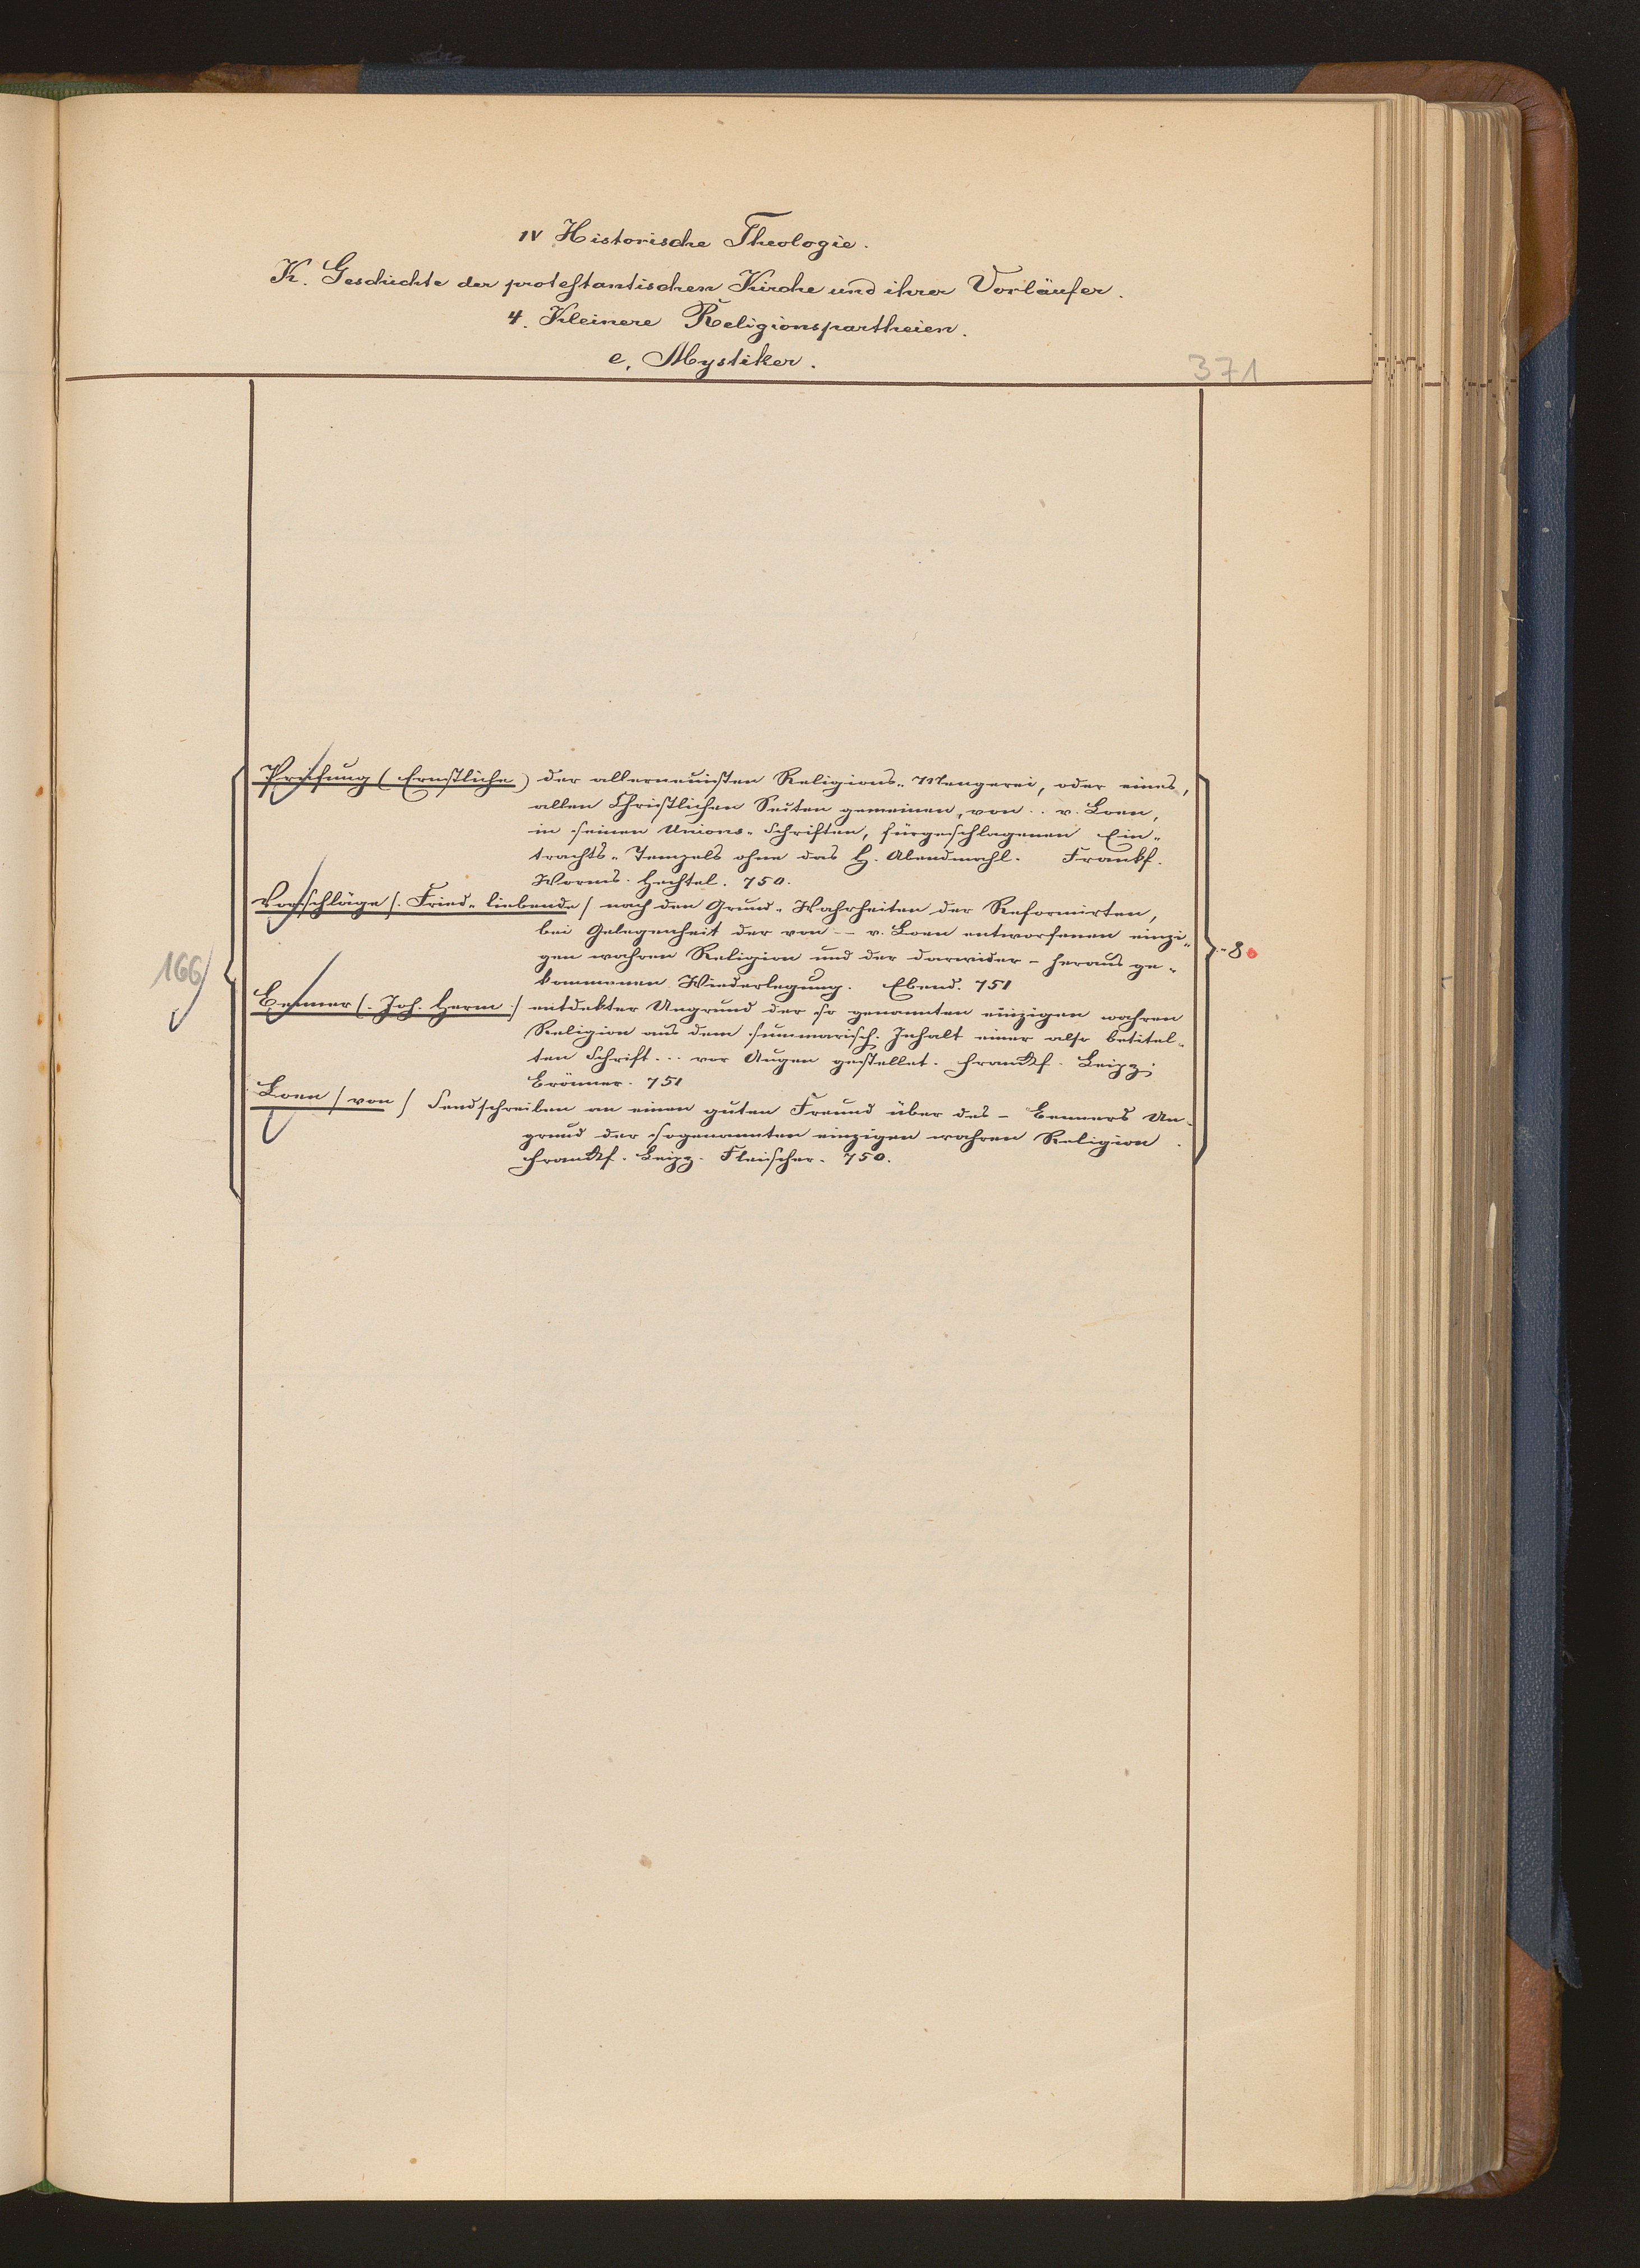 IV Historische Theologie.
K. Geschichte der protestantischen Kirche und ihrer Vorläufer.
4. Kleinere Religionspartheien.
e. Mystiker.
371
Prüfung (Ernstliche) der allerneuisten Religions-Mengerei, oder eines,
allen Christlichen Secten gemeinen, von .. v. Loen,
in seinen Unions-Schriften, fürgeschlagenen Ein-
trachts-Tempels ohne das H. Abendmahl. Frankf.
Worms. Hechtel. 750.
Vorschläge (. Fried-liebende) nach den Grund-Wahrheiten der Reformirten,
bei Gelegenheit der von -- v. Loen entworfenen einzi-
gen wahren Religion und der darwider - heraus ge-
kommenen Wiederlegung. Ebend. 751
166
-8o
Benner (. Joh. Herm .) entdekter Ungrund der so genannten einzigen wahren
Religion aus dem summarisch. Inhalt einer also betitel-
ten Schrift ... vor Augen gestellet. Frankf. Leipz.
Brönner. 751
Loen (von) Sendschreiben an einen guten Freund über des - Benners Un-
grund der sogenannten einzigen wahren Religion.
Frankf. Leipz. Fleischer. 750.